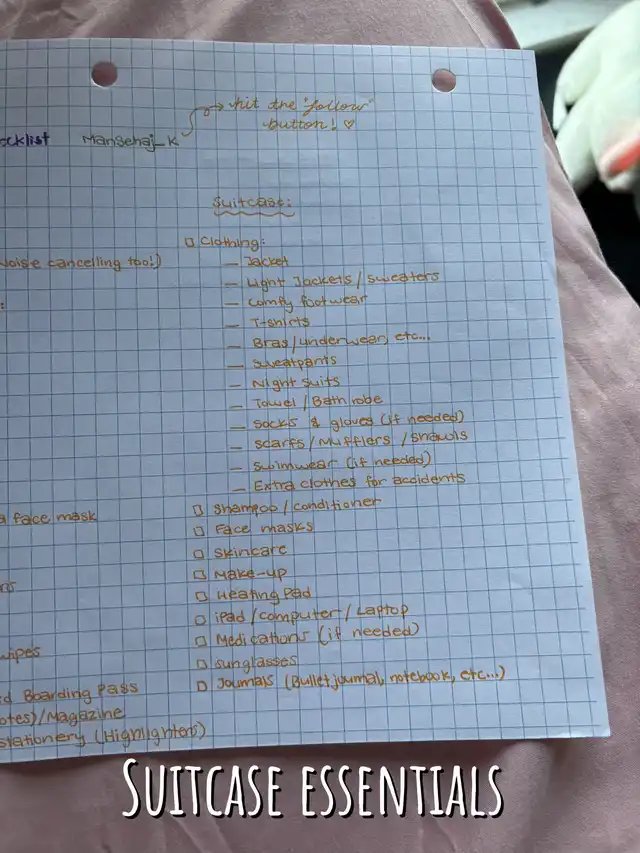 hit the "follow"
button! ♡
ecklist Mansehaj_K
Suitcase:
Noise cancelling too!)
:
□ Clothing:
— Jacket
— Light Jackets/Sweaters
— Comfy footwear
— T-shirts
— Bras/underwear, etc...
— Sweatpants
— Night suits
— Towel/Bath robe
— Socks & gloves (if needed)
— Scarfs/Mufflers/Shawls
— Swimwear (if needed)
— Extra clothes for accidents
□ Shampoo/conditioner
□ Face masks
□ Skincare
□ Make-up
□ Heating Pad
□ iPad/computer/Laptop
□ Medications (if needed)
□ Sunglasses
□ Journals (Bullet journal, notebook, etc...)
a face mask
ers
wipes
d Boarding Pass
otes)/Magazine
Stationery (Highlighters)
SUITCASE ESSENTIALS